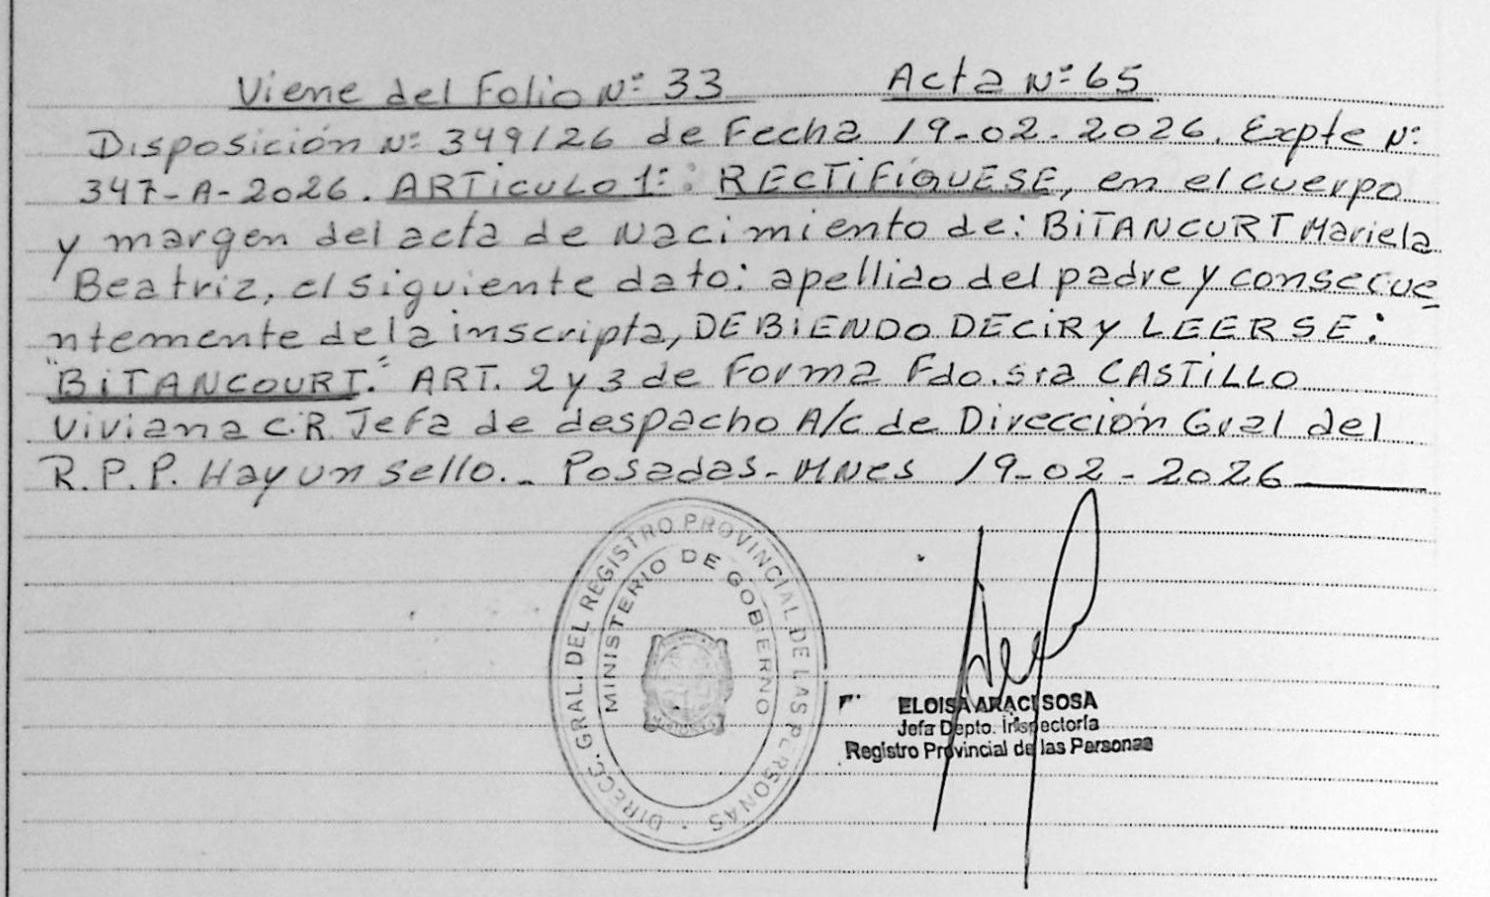 Viene del Folio Nº 33 Acta Nº 65
Disposición Nº 349/26 de Fecha 19-02-2026. Expte Nº
347-A-2026. ARTICULO 1º: RECTIFIQUESE, en el cuerpo
y margen del acta de Nacimiento de: BITANCURT Mariela
Beatriz, el siguiente dato: apellido del padre y consecue
ntemente de la inscripta, DEBIENDO DECIR y LEERSE:
"BITANCOURT." ART. 2 y 3 de Forma Fdo. Sra CASTILLO
Viviana C.R. Jefa de despacho A/c de Dirección Gral del
R.P.P. Hay un sello.- Posadas-Mnes 19-02-2026
DIRECC. GRAL. DEL REGISTRO PROVINCIAL DE LAS PERSONAS
MINISTERIO DE GOBIERNO
ELOISA ARACI SOSA
Jefa Depto. Inspectoría
Registro Provincial de las Personas